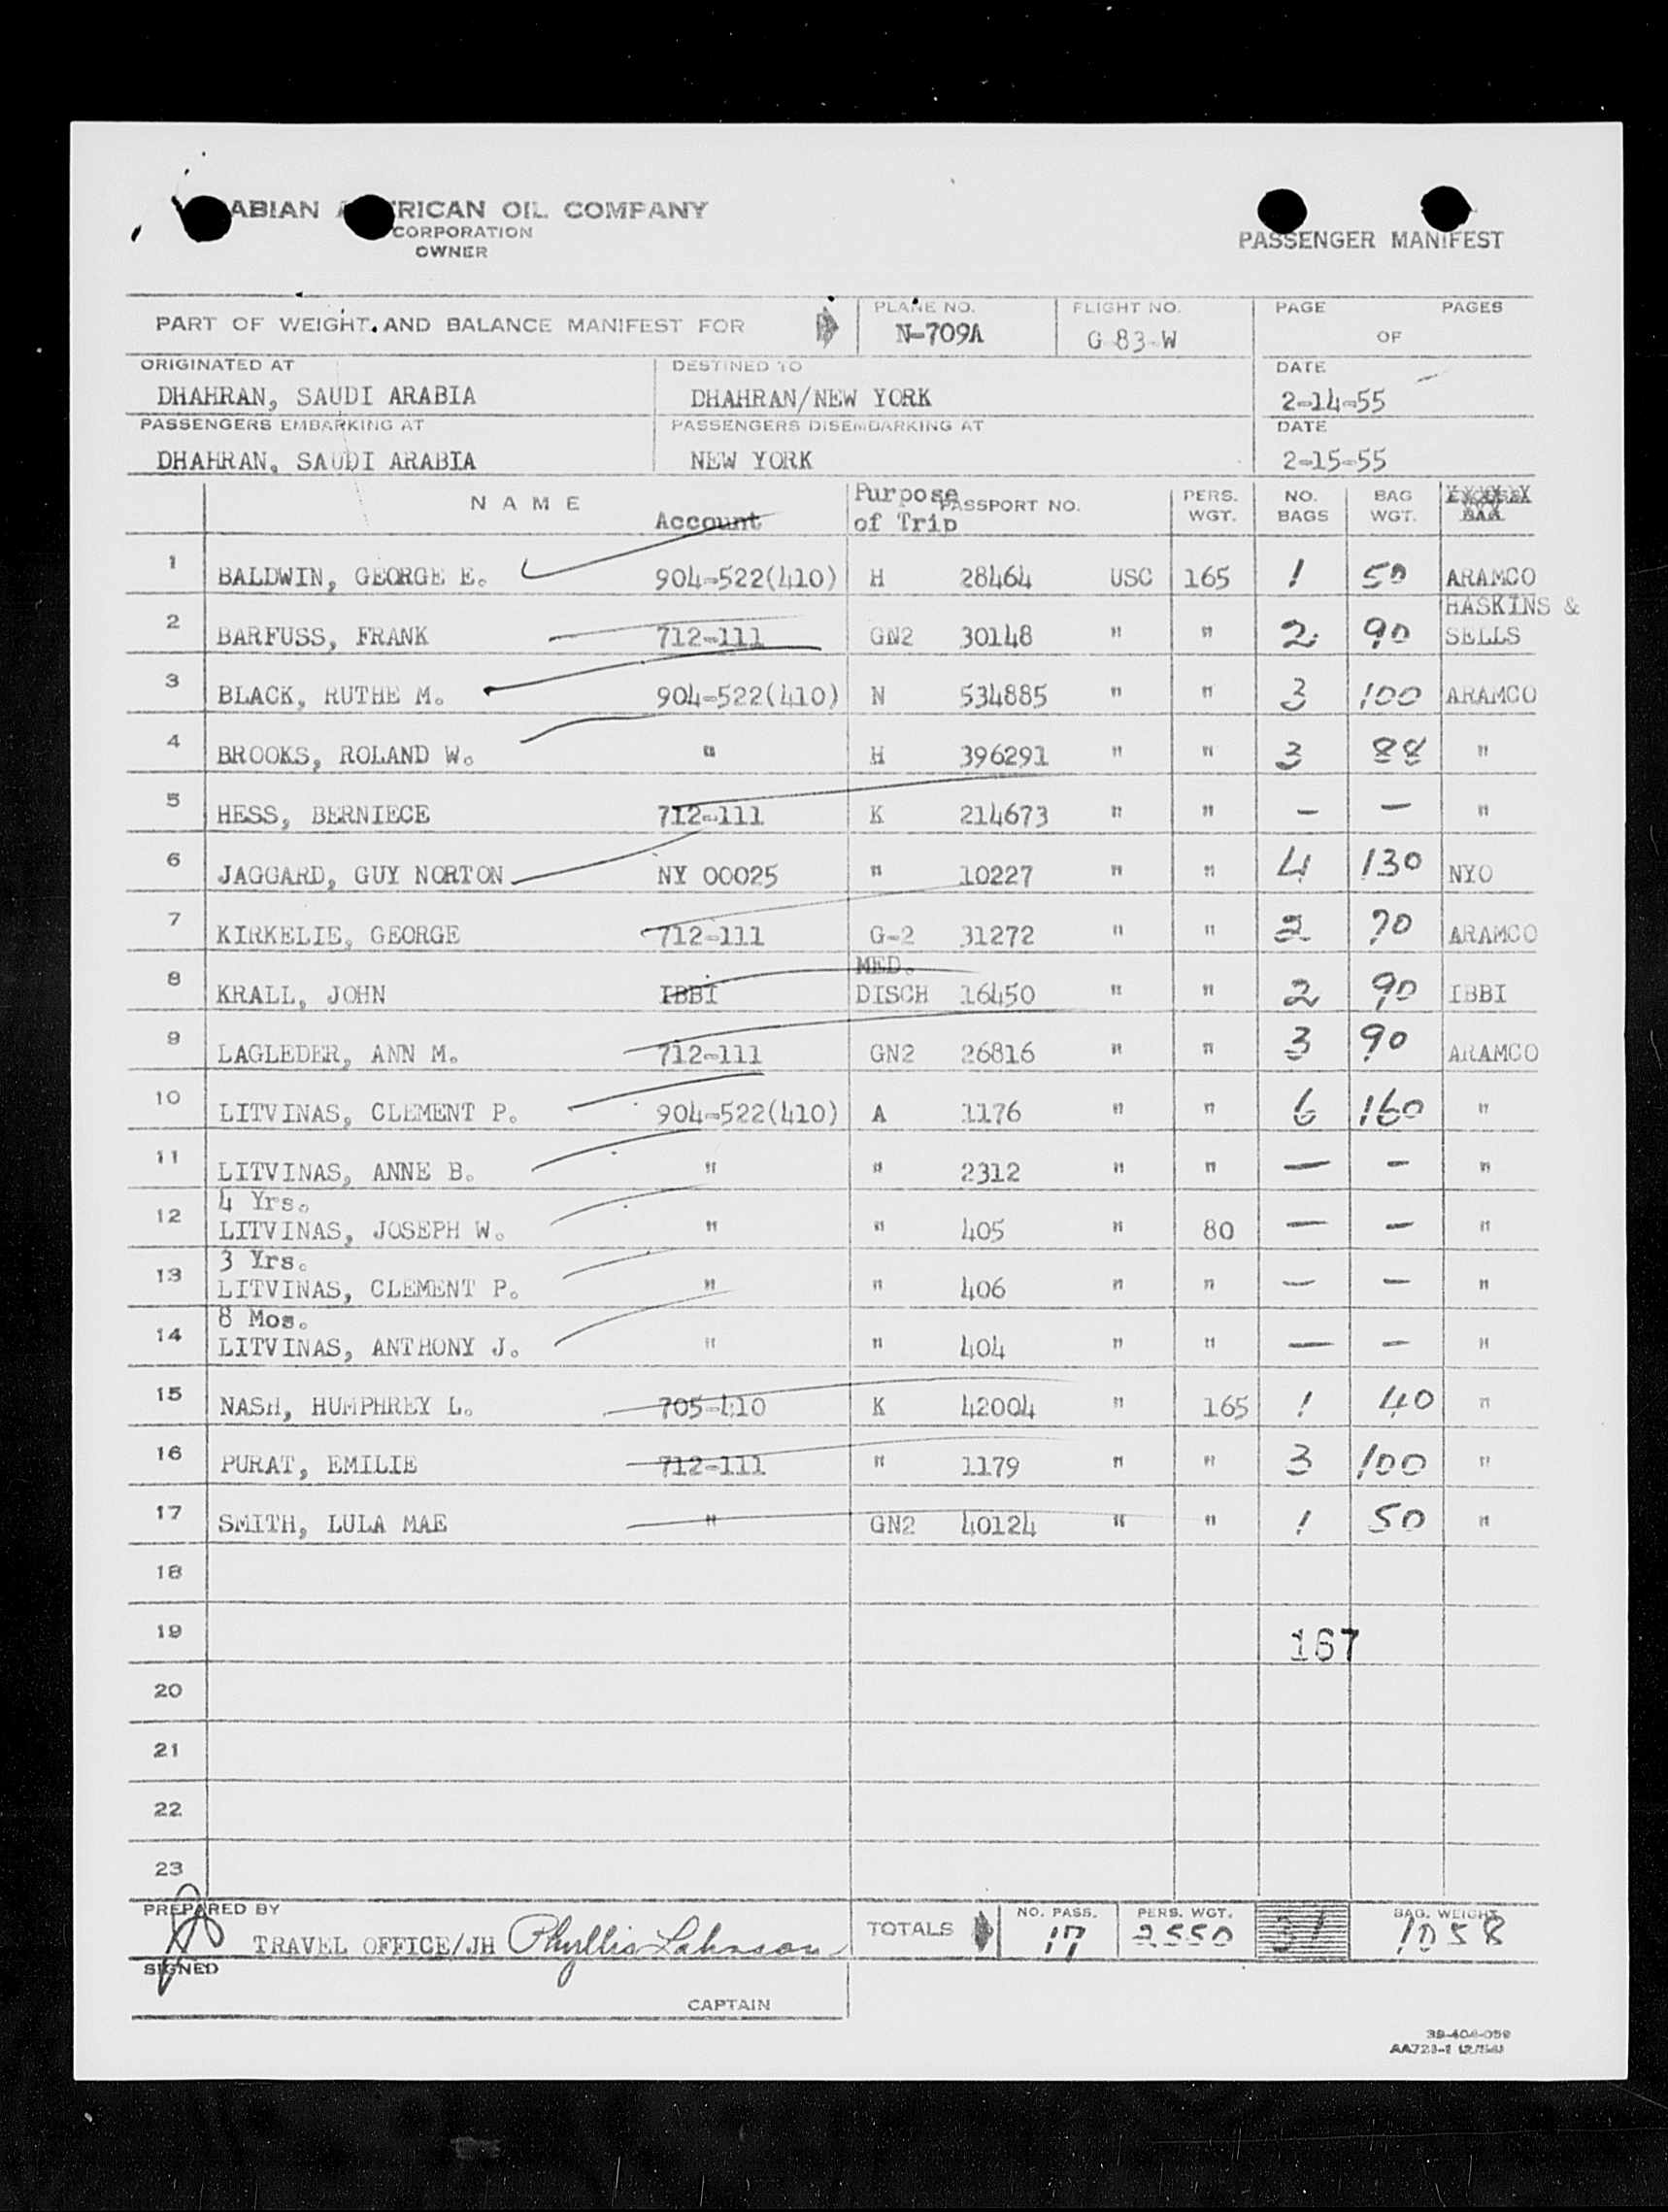 ABIAN RICAN OIL COMPANY
CORPORATION
OWNER
PASSENGER MANIFEST
PART OF WEIGHT AND BALANCE MANIFEST FOR
PLANE NO. FLIGHT NO. PAGE PAGES
N-709A G 83-W OF
ORIGINATED AT DESTINED TO DATE
DHAHRAN, SAUDI ARABIA DHAHRAN/NEW YORK 2-14-55
PASSENGERS EMBARKING AT PASSENGERS DISEMBARKING AT DATE
DHAHRAN, SAUDI ARABIA NEW YORK 2-15-55
NAME Account Purpose of Trip PASSPORT NO. PERS. WGT. NO. BAGS BAG WGT.
1 BALDWIN, GEORGE E. 904-522(410) H 28464 USC 165 1 50 ARAMCO
2 BARFUSS, FRANK 712-111 GN2 30148 " " 2 90 HASKINS & SELLS
3 BLACK, RUTHE M. 904-522(410) N 534885 " " 3 100 ARAMCO
4 BROOKS, ROLAND W. " H 396291 " " 3 88 "
5 HESS, BERNIECE 712-111 K 214673 " " - - "
6 JAGGARD, GUY NORTON NY 00025 " 10227 " " 4 130 NYO
7 KIRKELIE, GEORGE 712-111 G-2 31272 " " 2 70 ARAMCO
8 KRALL, JOHN IBBI MED. DISCH 16450 " " 2 90 IBBI
9 LAGLEDER, ANN M. 712-111 GN2 26816 " " 3 90 ARAMCO
10 LITVINAS, CLEMENT P. 904-522(410) A 1176 " " 6 160 "
11 LITVINAS, ANNE B. " " 2312 " " - - "
4 Yrs.
12 LITVINAS, JOSEPH W. " " 405 " 80 - - "
3 Yrs.
13 LITVINAS, CLEMENT P. " " 406 " " - - "
8 Mos.
14 LITVINAS, ANTHONY J. " " 404 " " - - "
15 NASH, HUMPHREY L. 705-410 K 42004 " 165 1 40 "
16 PURAT, EMILIE 712-111 " 1179 " " 3 100 "
17 SMITH, LULA MAE " GN2 40124 " " 1 50 "
18
19 167
20
21
22
23
PREPARED BY TOTALS NO. PASS. PERS. WGT. BAG. WEIGHT
TRAVEL OFFICE/JH Phyllis Lahnson 17 2550 31 1058
SIGNED
CAPTAIN